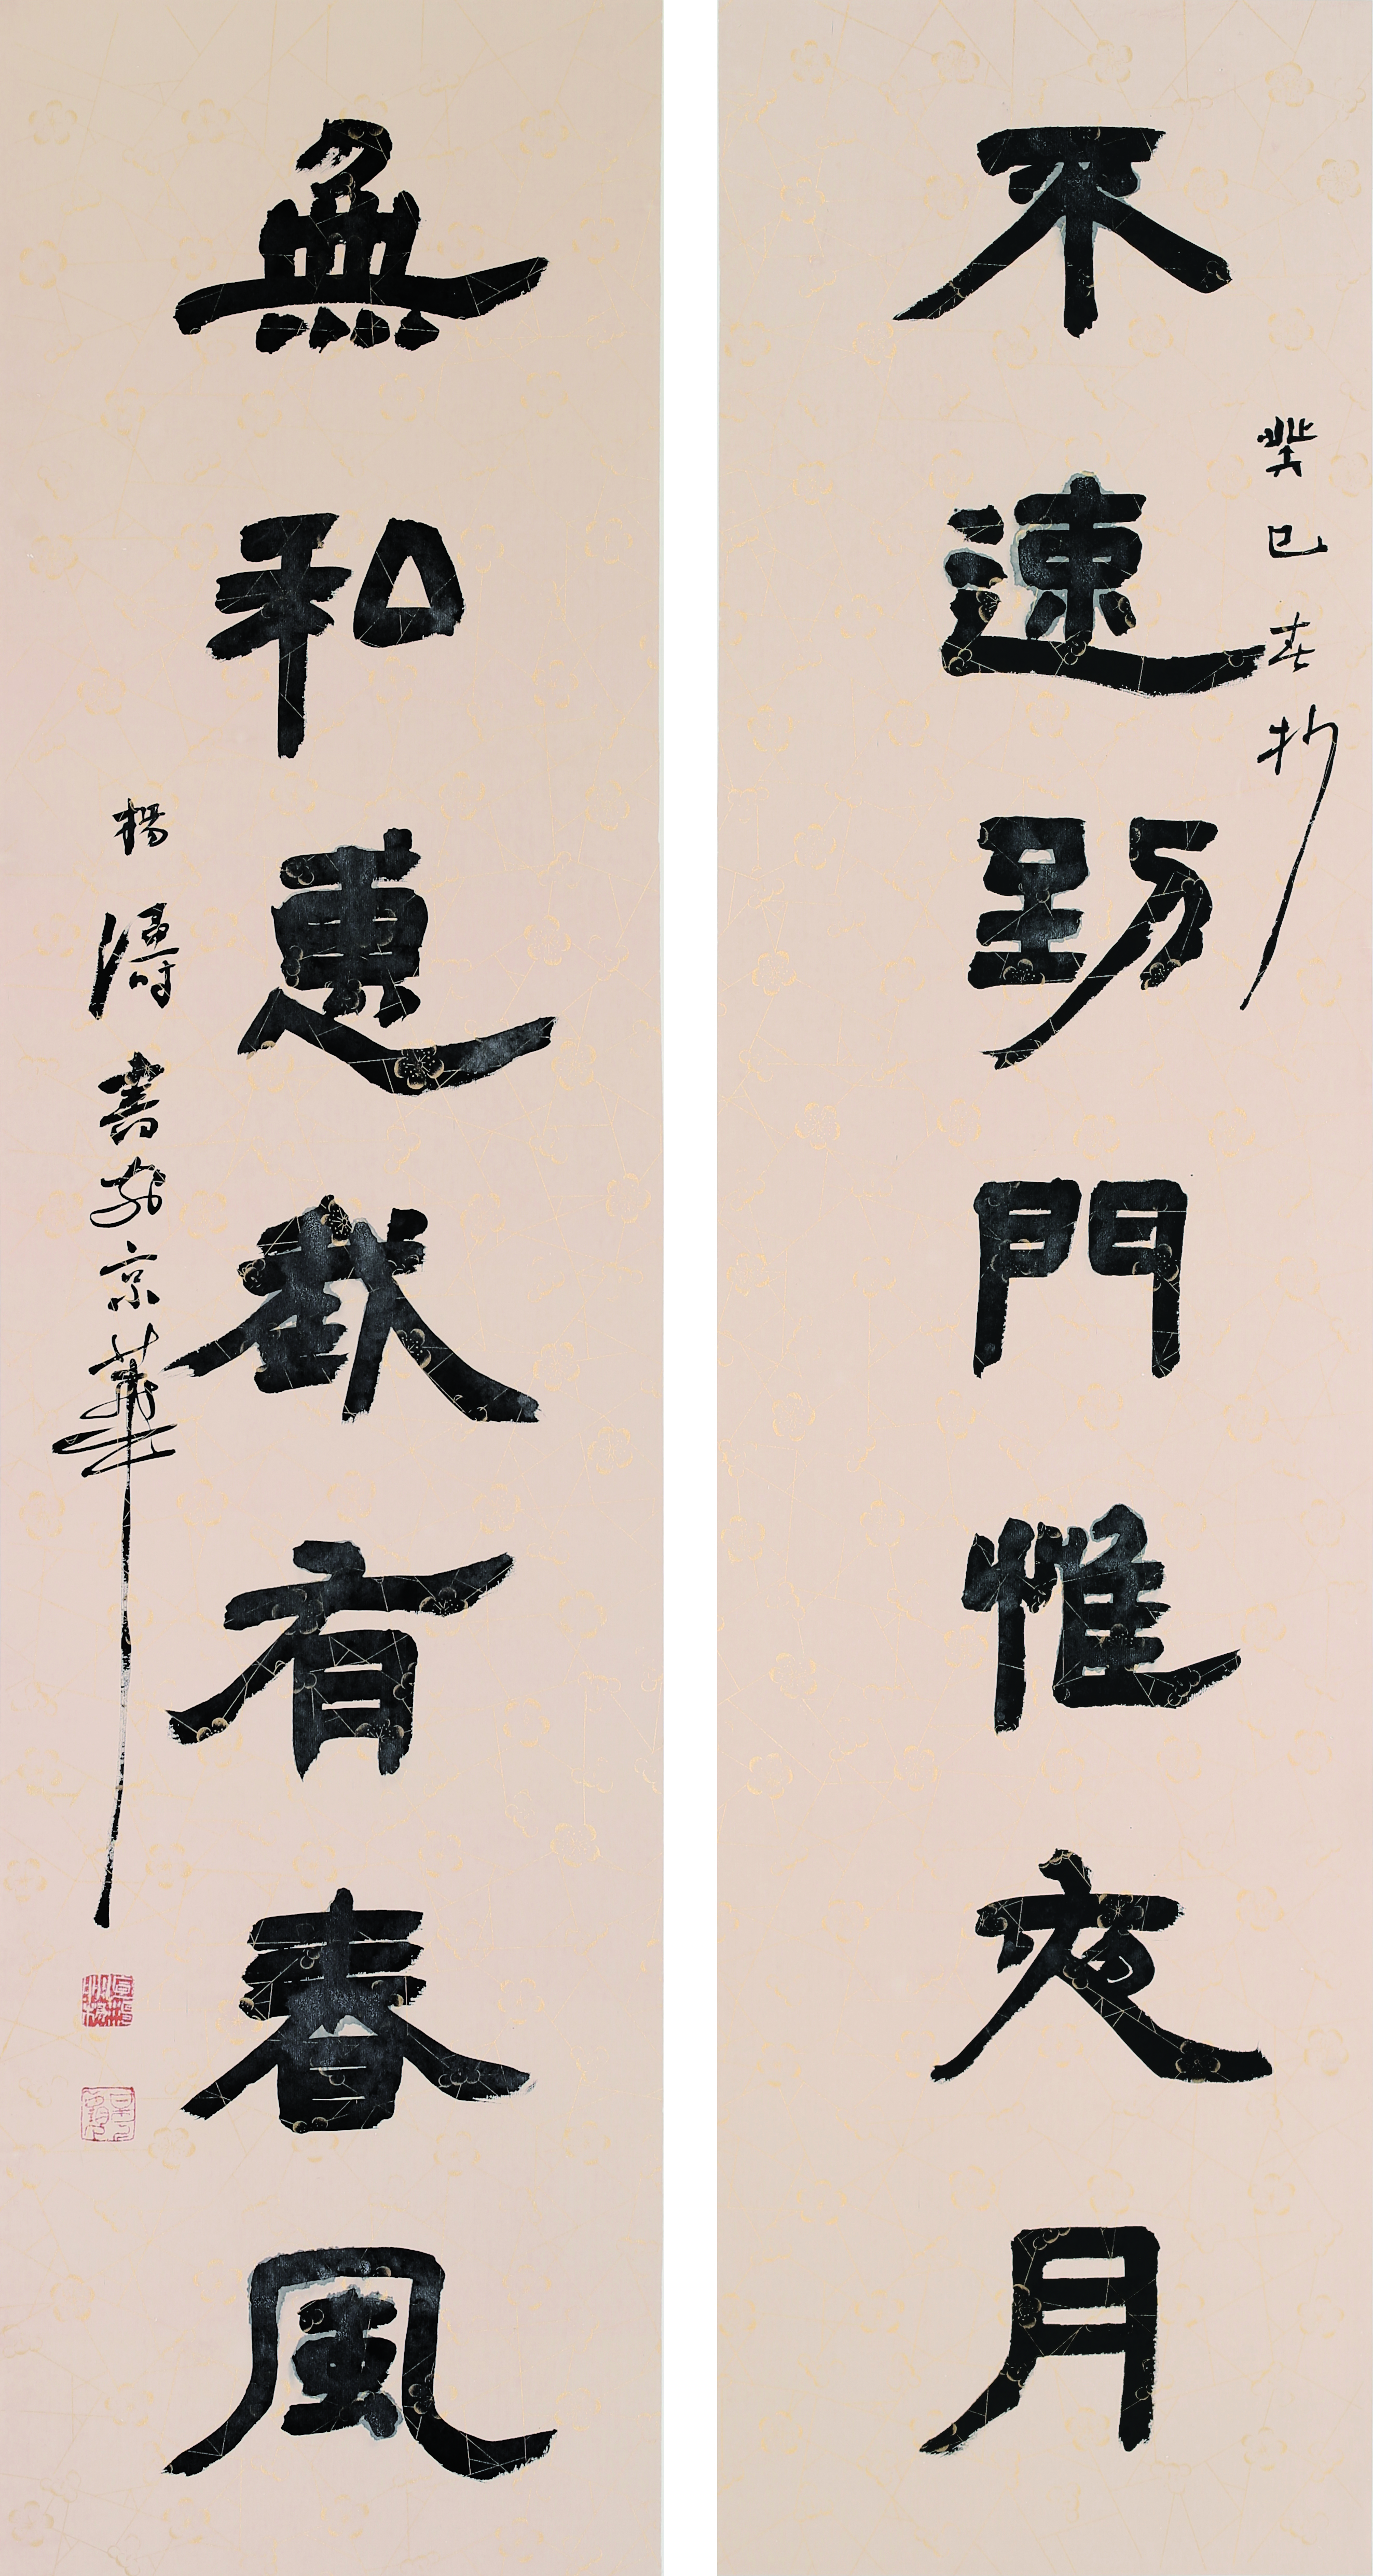 不速到門惟夜月
癸巳春杪
無私惠有春風
楊濤書於京華